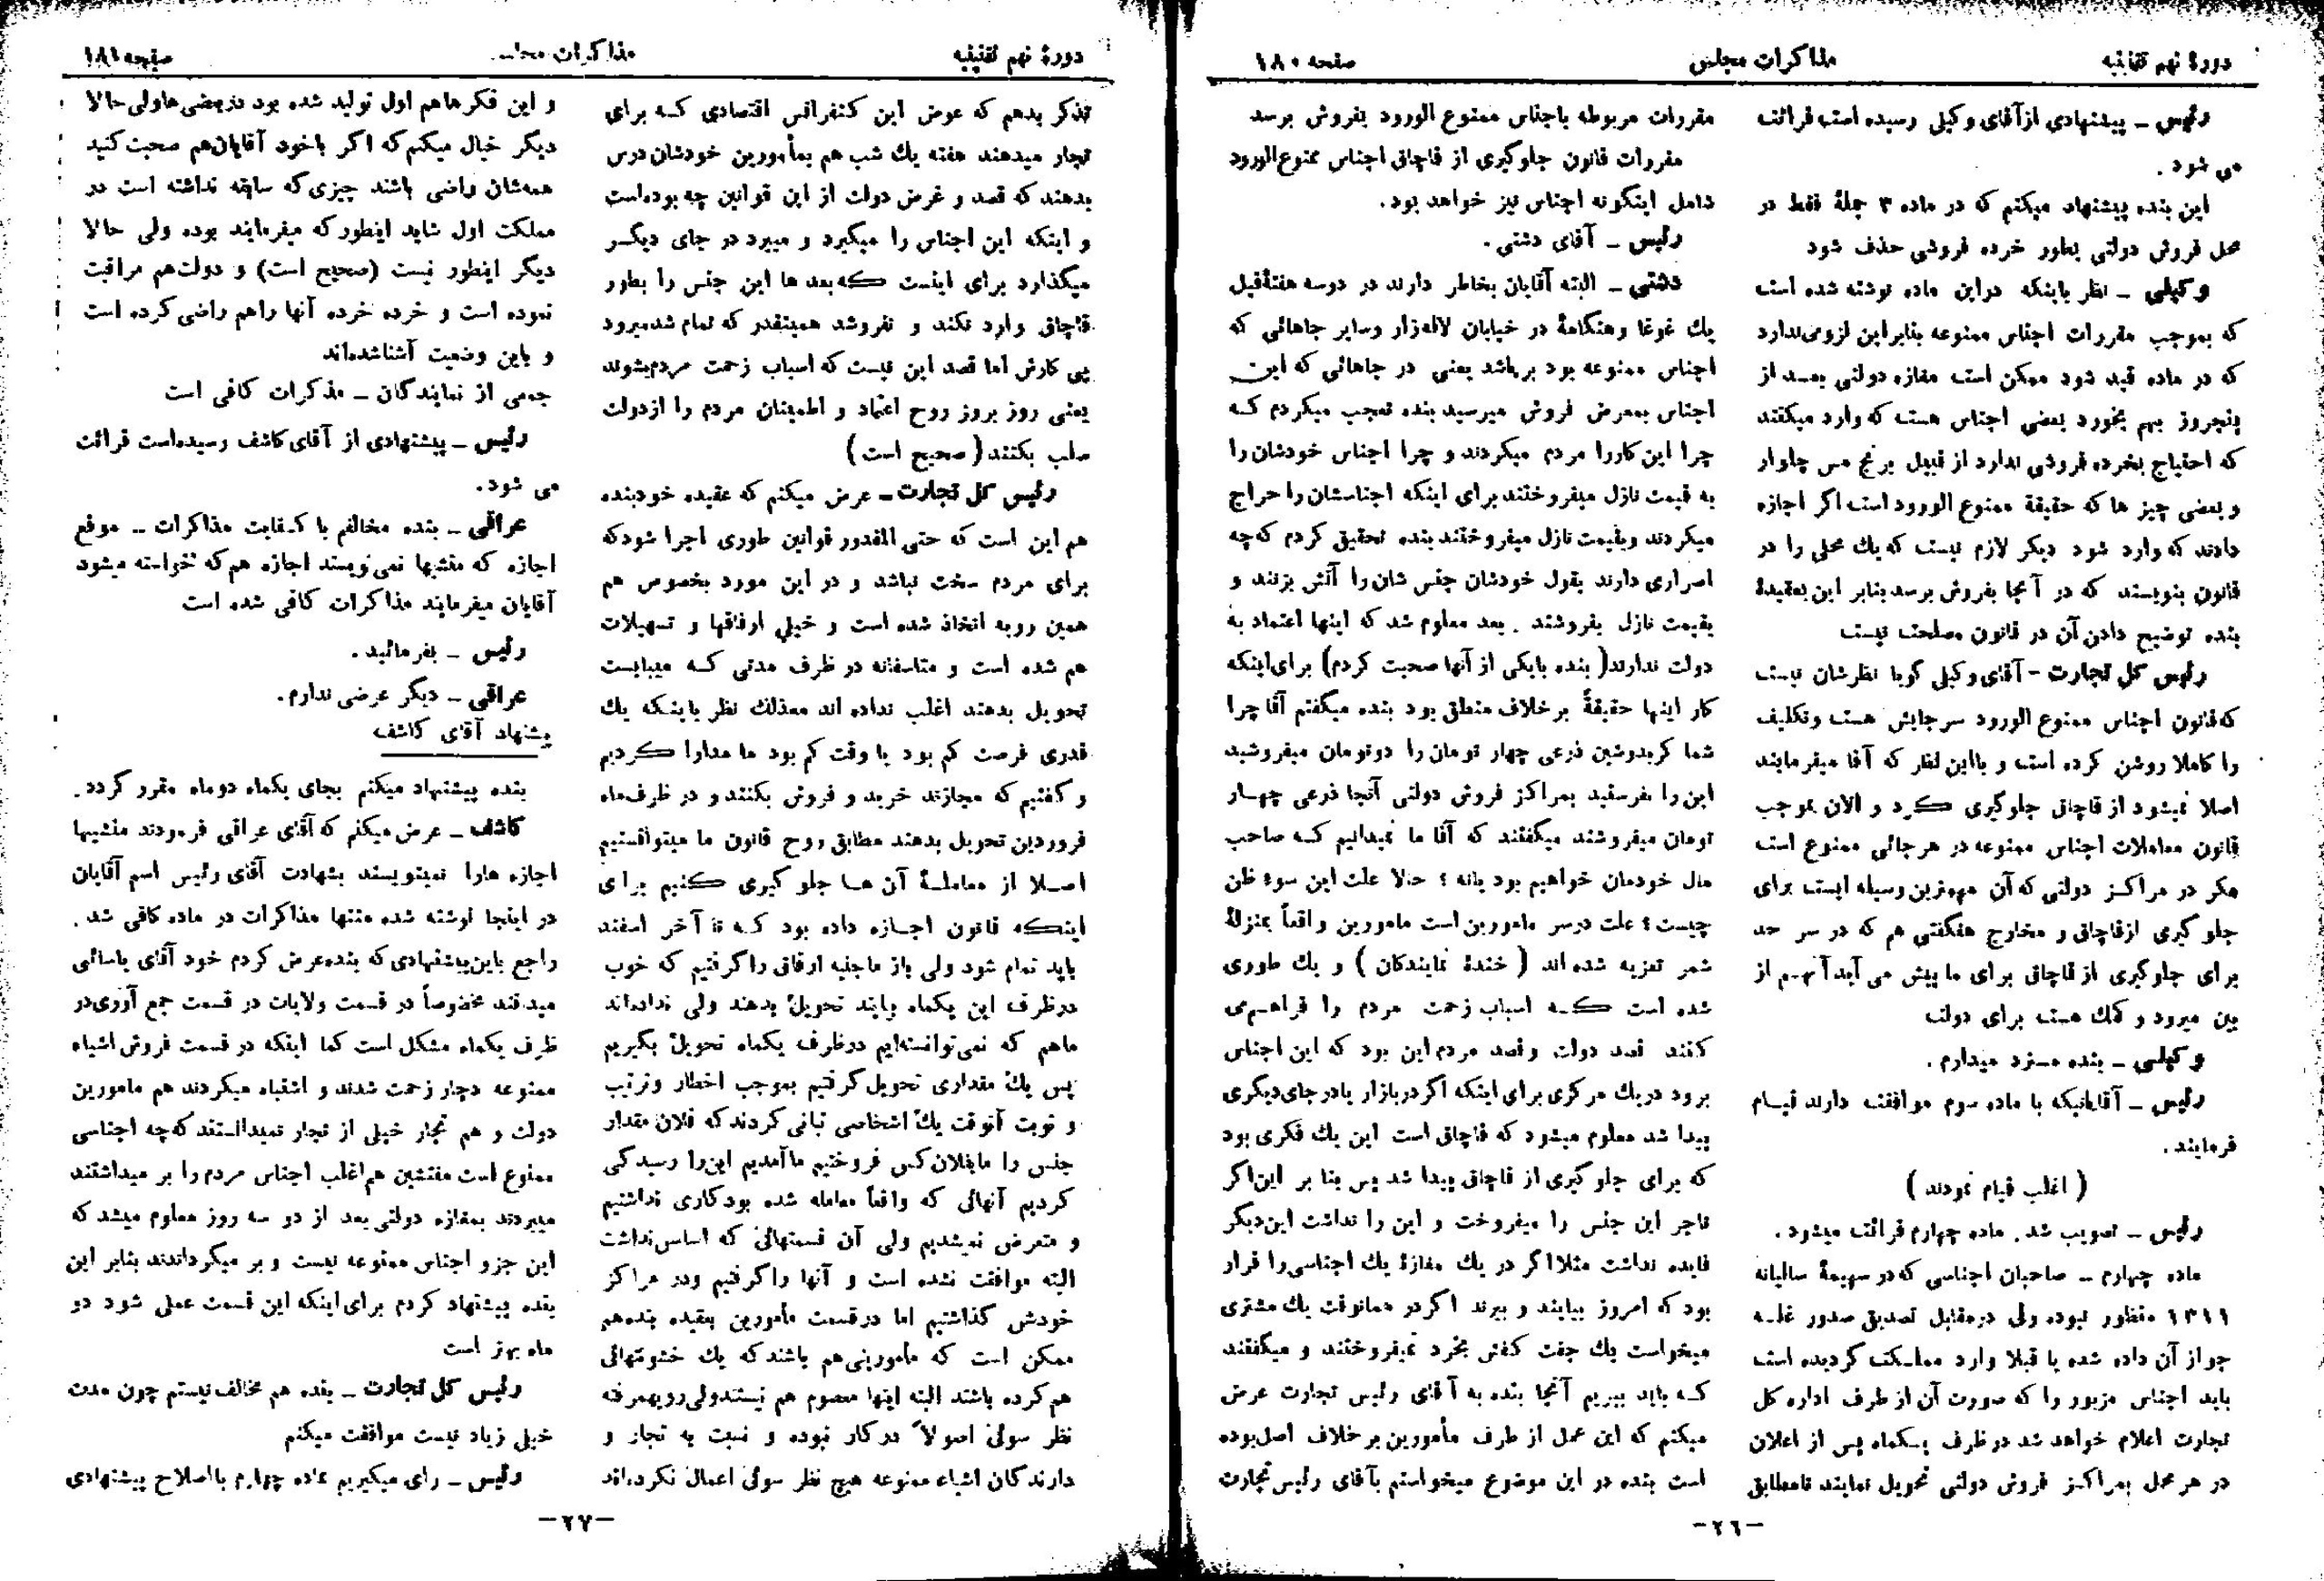 دورهٔ نهم تقنینیه
مذاکرات مجلس
صفحه ۱۸۰
رئیس ــ پیشنهادی ازآقای وکیلی رسیده است قرائت
می شود .
این بنده پیشنهاد میکنم که در ماده ۳ جملهٔ فقط در
محل فروش دولتی بطور خرده فروشی حذف شود
وکیلی ــ نظر باینکه دراین ماده نوشته شده است
که بموجب مقررات اجناس ممنوعه بنابراین لزومی‌ندارد
که در ماده قید شود ممکن است مغازه دولتی بعد از
پنجروز بهم بخورد بعضی اجناس هست که وارد میکنند
که احتیاج بخرده فروشی ندارد از قبیل برنج مس چلوار
و بعضی چیز ها که حقیقة ممنوع الورود است اگر اجازه
دادند که وارد شود دیگر لازم نیست که یك محلی را در
قانون بنویسند که در آنجا بفروش برسد بنابر این بعقیدهٔ
بنده توضیح دادن آن در قانون مصلحت نیست
رئیس کل تجارت - آقای وکیلی گویا نظرشان نیست
که‌قانون اجناس ممنوع الورود سرجایش هست وتکلیف
را کاملا روشن کرده است و بااین نظر که آقا میفرمایند
اصلا نمیشود از قاچاق جلوگیری کرد و الان بموجب
قانون معاملات اجناس ممنوعه در هرجائی ممنوع است
مگر در مراکز دولتی که‌آن مهمترین وسیله ایست برای
جلو گیری ازقاچاق و مخارج هنگفتی هم که در سر حد
برای جلوگیری از قاچاق برای ما پیش می آید آنهم از
بین میرود و کمك هست برای دولت
وکیلی ــ بنده مسترد میدارم .
رئیس ــ آقایانیکه با ماده سوم موافقت دارند قیام
فرمایند .
( اغلب قیام نمودند )
رئیس ــ تصویب شد . ماده چهارم قرائت میشود .
ماده چهارم ــ صاحبان اجناسی که‌در سهیمهٔ سالیانه
۱۳۱۱ منظور نبوده ولی درمقابل تصدیق صدور غله
جواز آن داده شده یا قبلا وارد مملکت گردیده است
باید اجناس مزبور را که صورت آن از طرف اداره کل
تجارت اعلام خواهد شد در ظرف یکماه پس از اعلان
در هر محل بمراکز فروش دولتی تحویل نمایند تامطابق
مقررات مربوطه باجناس ممنوع الورود بفروش برسد
مقررات قانون جلوگیری از قاچاق اجناس ممنوع‌الورود
شامل اینگونه اجناس نیز خواهد بود .
رئیس ــ آقای دشتی .
دشتی ــ البته آقایان بخاطر دارند در دوسه هفتهٔ‌قبل
یك غوغا وهنگامهٔ در خیابان لاله‌زار وسایر جاهائی که
اجناس ممنوعه بود برپاشد یعنی در جاهائی که این
اجناس بمعرض فروش میرسید بنده تعجب میکردم که
چرا این کاررا مردم میکردند و چرا اجناس خودشان را
به قیمت نازل میفروختند برای اینکه اجناسشان را حراج
میکردند وبقیمت نازل میفروختند بنده تحقیق کردم که‌چه
اصراری دارند بقول خودشان جنس شان‌را آتش بزنند و
بقیمت نازل بفروشند . بعد معلوم شد که اینها اعتماد به
دولت ندارند( بنده بایکی از آنها صحبت کردم) برای‌اینکه
کار اینها حقیقةً برخلاف منطق بود بنده میگفتم آقا چرا
شما کربدوشین ذرعی چهار تومان را دوتومان میفروشید
این را بفرستید بمراکز فروش دولتی آنجا ذرعی چهار
تومان میفروشند میگفتند که آقا ما نمیدانیم که صاحب
مال خودمان خواهیم بود یانه ؟ حالا علت این سوء ظن
چیست ؟ علت درسر مامورین است مامورین واقعاً بمنزلهٔ
شمر تعزیه شده اند ( خندهٔ نمایندگان ) و یك طوری
شده است که اسباب زحمت مردم را فراهم‌می
کنند قصد دولت وقصد مردم‌این بود که این اجناس
برود دریك مرکزی برای اینکه اگر دربازار یادرجای‌دیگری
پیدا شد معلوم میشود که قاچاق است این یك فکری بود
که برای جلوگیری از قاچاق پیدا شد پس بنا بر این‌اگر
تاجر این جنس را میفروخت و این را نداشت این‌دیگر
فایده نداشت مثلا اگر در یك مغازهٔ یك اجناسی‌را قرار
بود که امروز بیایند و ببرند اگر در همانوقت یك مشتری
میخواست یك جفت کفش بخرد نمیفروختند و میگفتند
که باید ببریم آنجا بنده به آقای رئیس تجارت عرض
میکنم که این عمل از طرف مأمورین برخلاف اصل‌بوده
است بنده در این موضوع میخواستم بآقای رئیس‌تجارت
-۲۶-
دورهٔ نهم تقنینیه
مذاکرات مجلس
صفحه ۱۸۱
تذکر بدهم که عوض این کنفرانس اقتصادی که برای
تجار میدهند هفته یك شب هم بمأمورین خودشان درس
بدهند که قصد و غرض دولت از این قوانین چه بوده‌است
و اینکه این اجناس را میگیرد و میبرد در جای دیگر
میگذارد برای اینست که‌بعد ها این جنس را بطور
قاچاق وارد نکند و نفروشد همینقدر که تمام شد‌میرود
پی کارش اما قصد این نیست که اسباب زحمت مردم‌بشوند
یعنی روز بروز روح اعتماد و اطمینان مردم را ازدولت
سلب بکنند( صحیح است )
رئیس کل تجارت ــ عرض میکنم که عقیده خودبنده
هم این است که حتی المقدور قوانین طوری اجرا شودکه
برای مردم سخت نباشد و در این مورد بخصوص هم
همین رویه اتخاذ شده است و خیلی ارفاقها و تسهیلات
هم شده است و متاسفانه در ظرف مدتی که میبایست
تحویل بدهند اغلب نداده اند معذلك نظر باینکه یك
قدری فرصت کم بود یا وقت کم بود ما مدارا کردیم
و گفتیم که مجازند خرید و فروش بکنند و در ظرف‌ماه
فروردین تحویل بدهند مطابق روح قانون ما میتوانستیم
اصلا از معاملهٔ آن ها جلو گیری کنیم برای
اینکه قانون اجازه داده بود که تا آخر اسفند
باید تمام شود ولی باز ماجنبه ارفاق راگرفتیم که خوب
درظرف این یکماه بایند تحویل بدهند ولی نداده‌اند
ماهم که نمی‌توانسته‌ایم درظرف یکماه تحویل بگیریم
پس یك مقداری تحویل گرفتیم بموجب اخطار وترتیب
و نوبت آنوقت یك اشخاصی تبانی کردند که فلان مقدار
جنس را مابفلان‌کس فروختیم ماآمدیم این‌را رسیدگی
کردیم آنهائی که واقعاً معامله شده بود کاری نداشتیم
و متعرض نمیشدیم ولی آن قسمتهائی که اساس‌نداشت
البته موافقت نشده است و آنها راگرفتیم ودر مراکز
خودش گذاشتیم اما درقسمت مأمورین بعقیده بنده‌هم
ممکن است که مأمورینی‌هم باشند که یك خشونتهائی
هم‌کرده باشند البته اینها معصوم هم نیستندولی رویهمرفته
نظر سوئی اصولاً در کار نبوده و نسبت به تجار و
دارندگان اشیاء ممنوعه هیچ نظر سوئی اعمال نکرده‌اند
و این فکرهاهم اول تولید شده بود دربعضی‌هاولی‌حالا
دیگر خیال میکنم که اگر باخود آقایان‌هم صحبت کنید
همه‌شان راضی باشند چیزی‌که سابقه نداشته است در
مملکت اول شاید اینطور‌که میفرمایند بوده ولی حالا
دیگر اینطور نیست (صحیح است) و دولت‌هم مراقبت
نموده است و خرده خرده آنها راهم راضی کرده است
و باین وضعیت آشناشده‌اند
جمعی از نمایندگان ــ مذکرات کافی است
رئیس ــ پیشنهادی از آقای کاشف رسیده‌است قرائت
می شود.
عراقی ــ بنده مخالفم با کفایت مذاکرات ــ موقع
اجازه که منشیها نمی‌نویسند اجازه هم‌که نخواسته میشود
آقایان میفرمایند مذاکرات کافی شده است
رئیس ــ بفرمائید .
عراقی ــ دیگر عرضی ندارم .
پیشنهاد آقای کاشف
بنده پیشنهاد میکنم بجای یکماه دوماه مقرر گردد.
کاشف ــ عرض میکنم که‌آقای عراقی فرمودند منشیها
اجازه هارا نمینویسند بشهادت آقای رئیس اسم آقایان
در اینجا نوشته شده منتها مذاکرات در ماده کافی شد .
راجع باین‌پیشنهادی که بنده‌عرض کردم خود آقای یاسائی
میدانند مخصوصاً در قسمت ولایات در قسمت جمع آوری‌در
ظرف یکماه مشکل است کما اینکه در قسمت فروش اشیاء
ممنوعه دچار زحمت شدند و اشتباه میکردند هم مامورین
دولت و هم تجار خیلی از تجار نمیدانستند که‌چه اجناسی
ممنوع است مفتشین هم‌اغلب اجناس مردم را بر میداشتند
میبردند بمغازه دولتی بعد از دو سه روز معلوم میشد که
این جزو اجناس ممنوعه نیست و بر میگرداندند بنابر این
بنده پیشنهاد کردم برای‌اینکه این قسمت عملی شود دو
ماه بهتر است
رئیس کل تجارت ــ بنده هم مخالف‌نیستم چون مدت
خیلی زیاد نیست موافقت میکنم
رئیس ــ رای میگیریم بماده چهارم بااصلاح پیشنهادی
-۲۷-